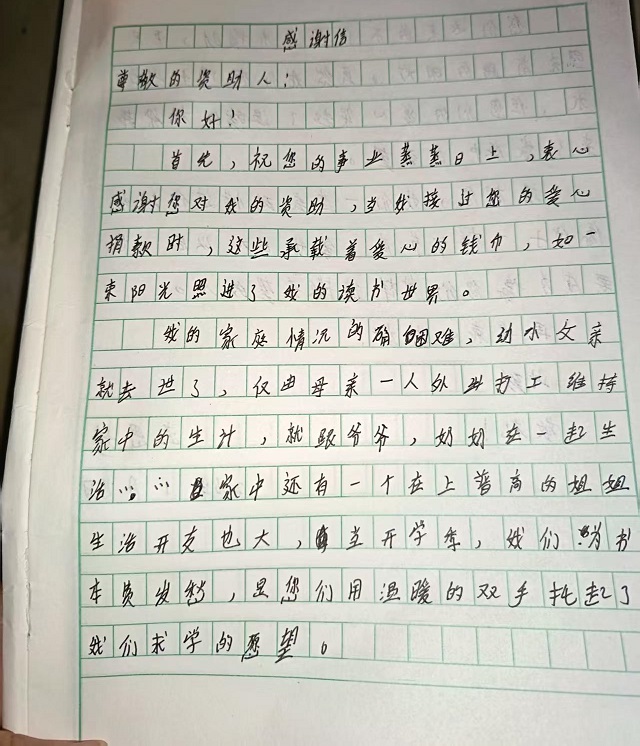 感谢信
尊敬的资助人：
你好！
首先，祝您的事业蒸蒸日上，衷心
感谢您对我的资助，当我接过您的爱心
捐款时，这些承载着爱心的钱币，如一
束阳光照进了我的读书世界。
我的家庭情况的确困难，幼小父亲
就去世了，仅由母亲一人外出打工维持
家中的生计，就跟爷爷，奶奶在一起生
活……且家中还有一个在上普高的姐姐
生活开支也大，每当开学季，我们为书
本费发愁，是您们用温暖的双手托起了
我们求学的愿望。